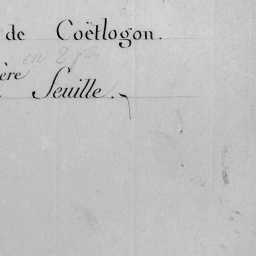 de Coëtlogon.
ère
Feuille.